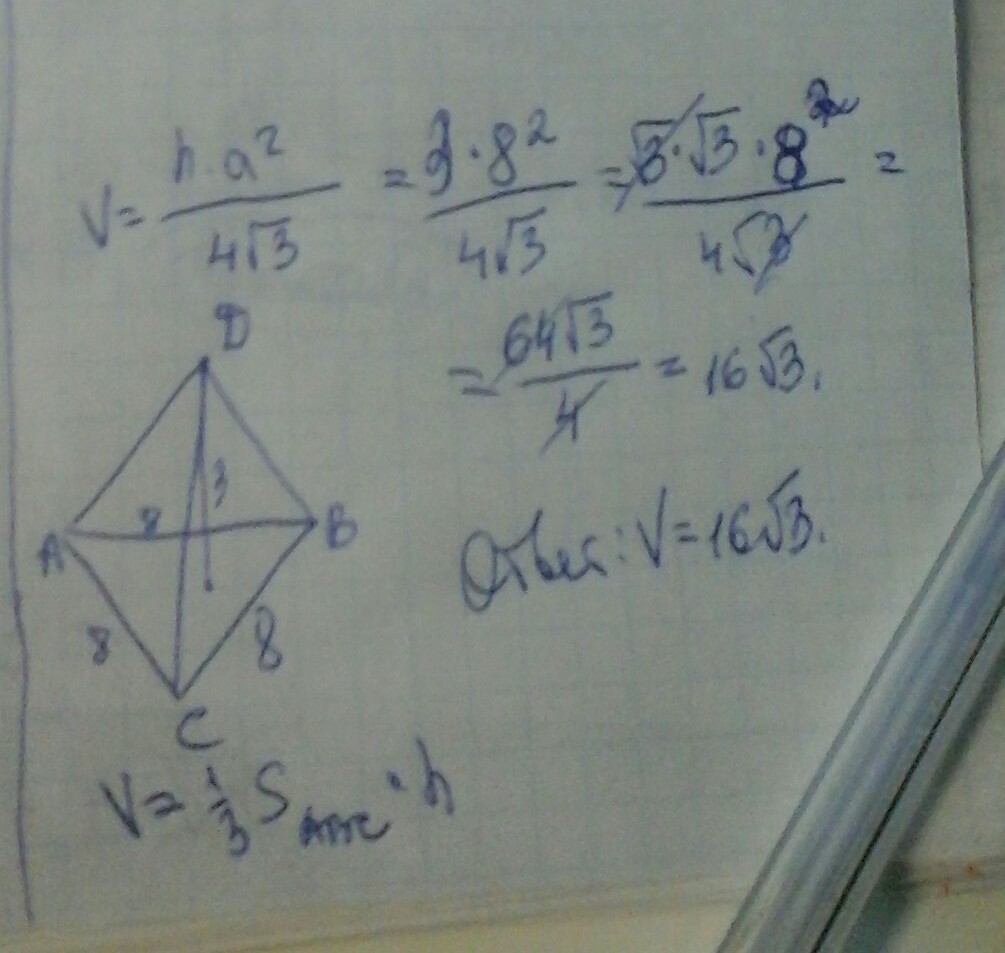 V = h·a² / 4√3 = 3·8² / 4√3 = √3·√3·8² / 4√3 =
= 64√3 / 4 = 16√3.
D
3
A 8 B
8 8
C
Ответ: V = 16√3.
V = 1/3 S · h